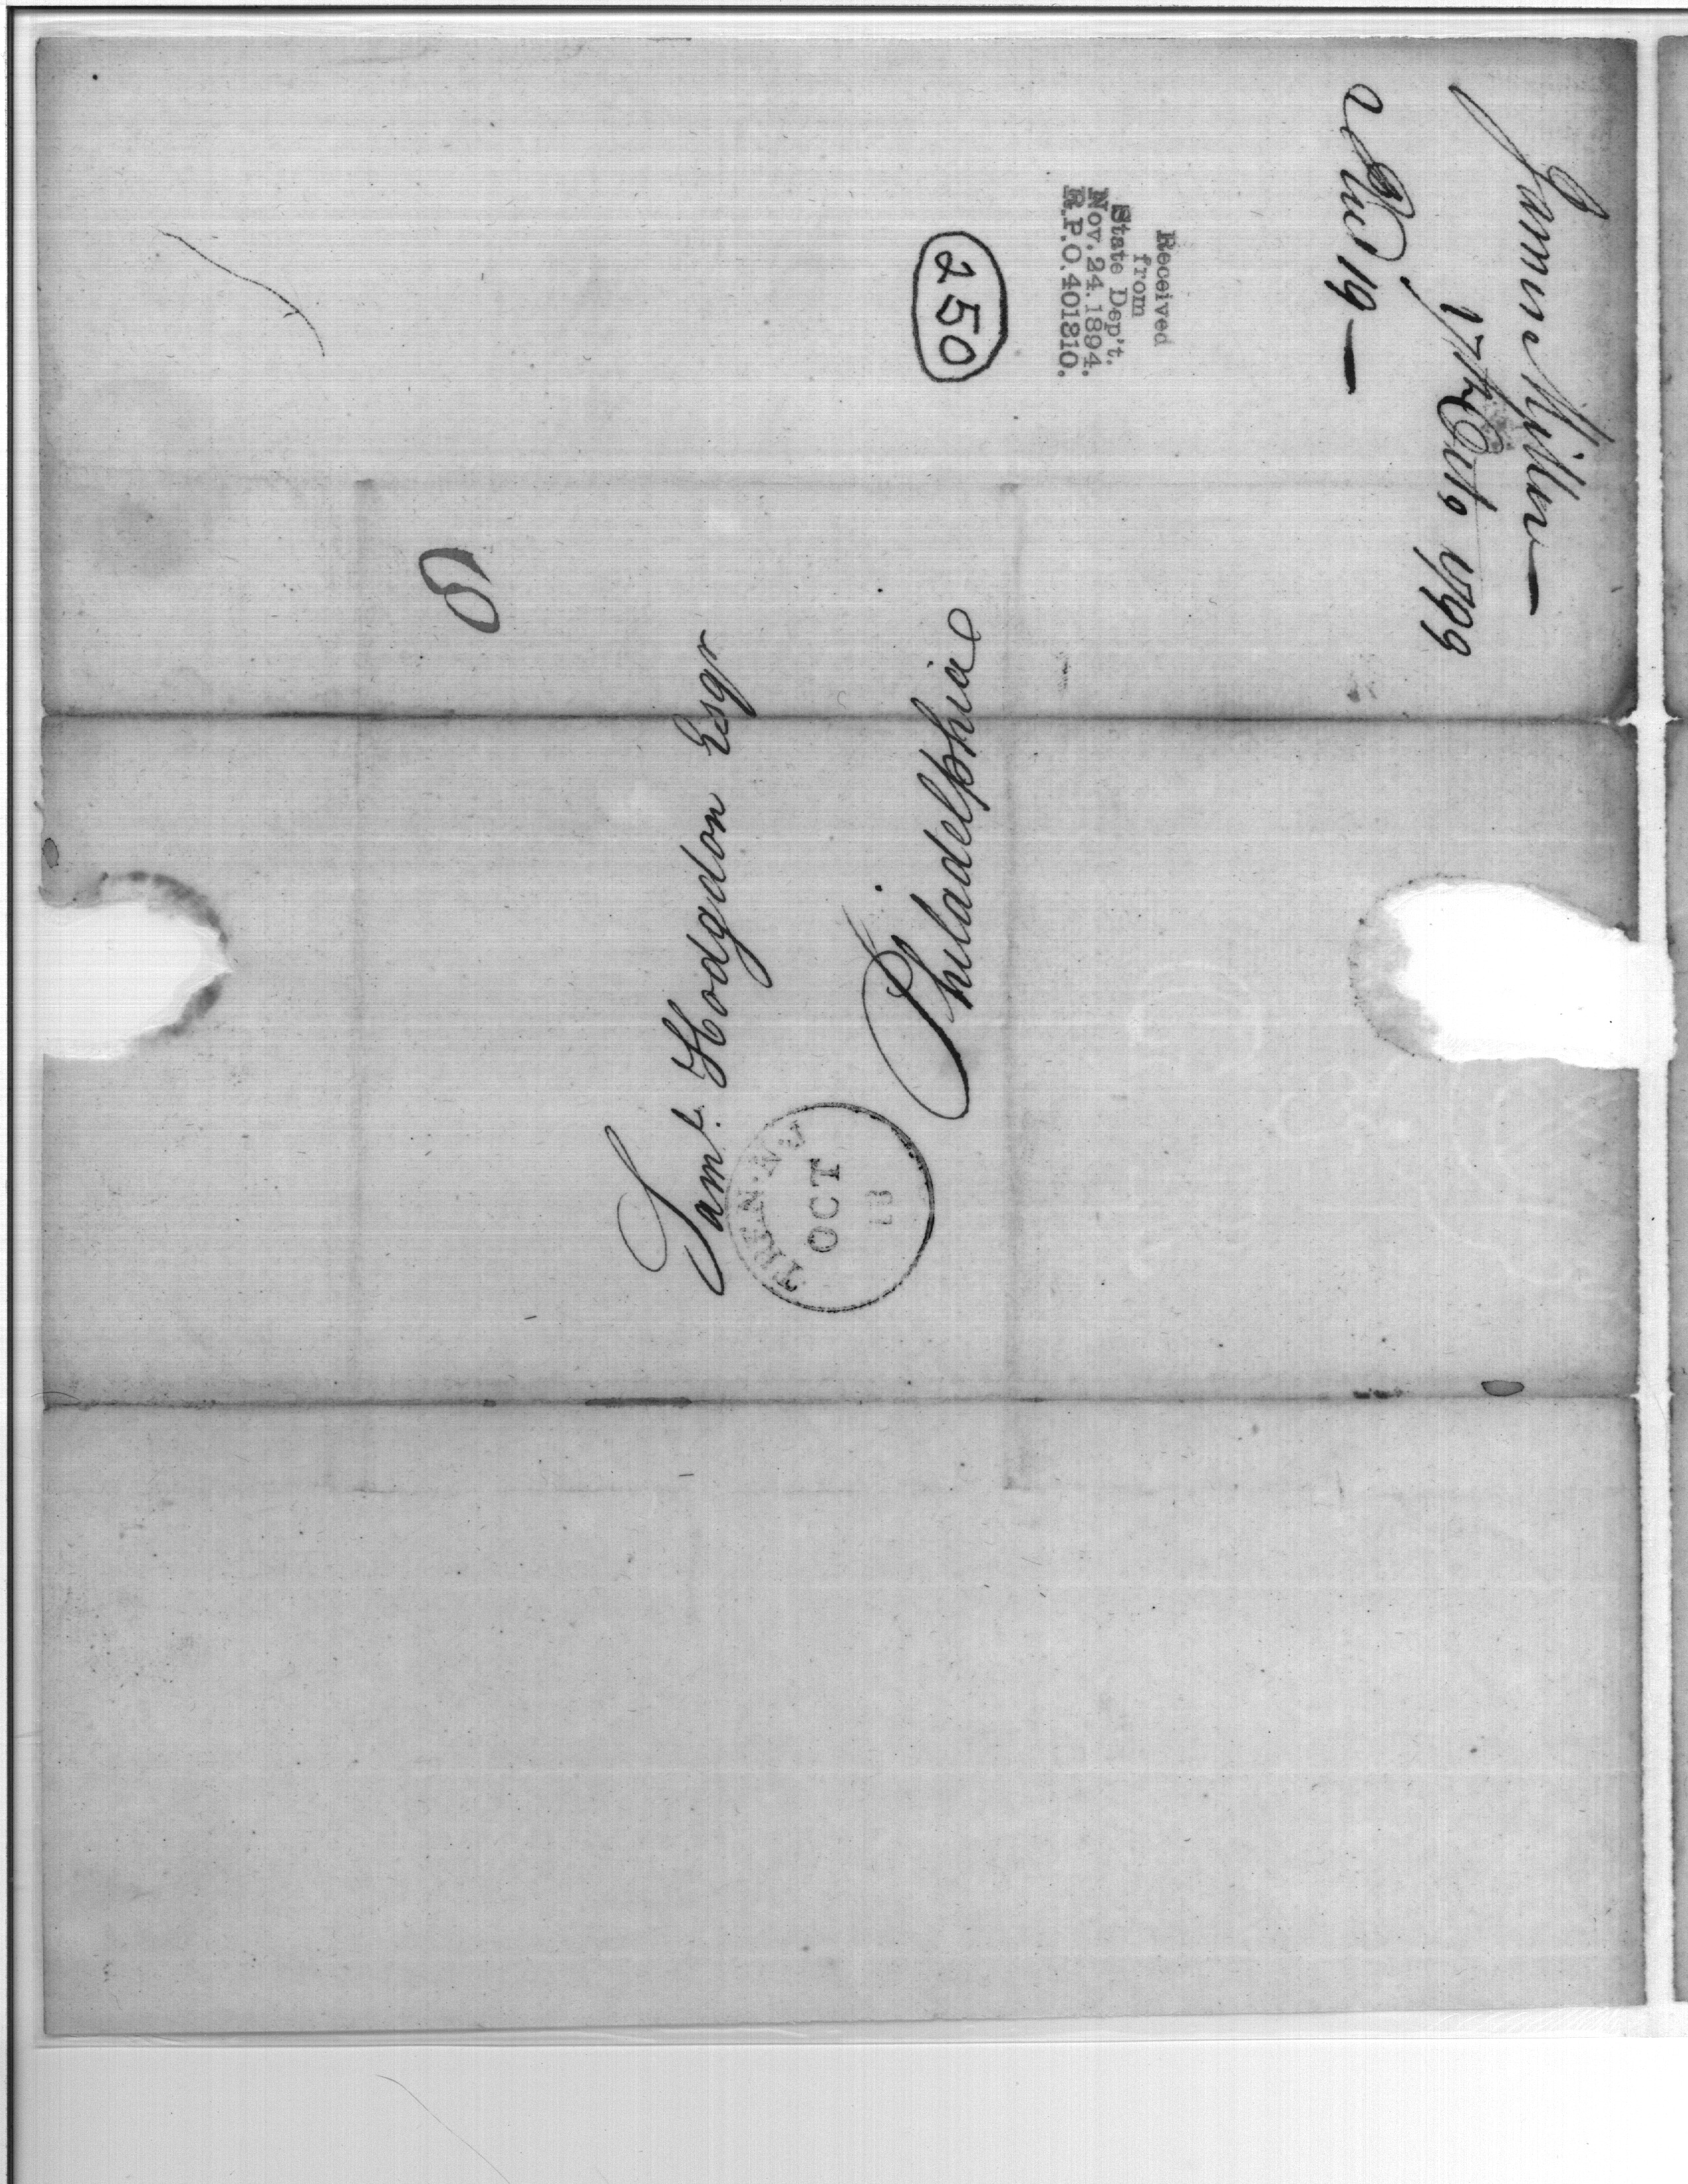 James Miller
17th Octo 1799
Recd 19
Received
from
State Dep't.
Nov. 24. 1894.
R.P.O. 401310.
250
8
Saml. Hodgdon Esqr
Philadelphia
OCT
18